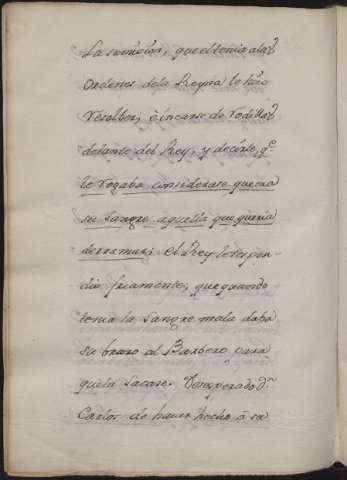 La sumicion, que el tenia a las
Ordenes de la Reyna le hizo
resolber, è incarse de rodillas
delante del Rey, y decirle, q.e
le rogaba considerase que era
su sangre aquella que queria
derramar; el Rey le respon-
dio friamente, que quando
tenia la sangre mala daba
su brazo al Barbero para
que la sacase. Desesperado Dn.
Carlos de haver hecho â su